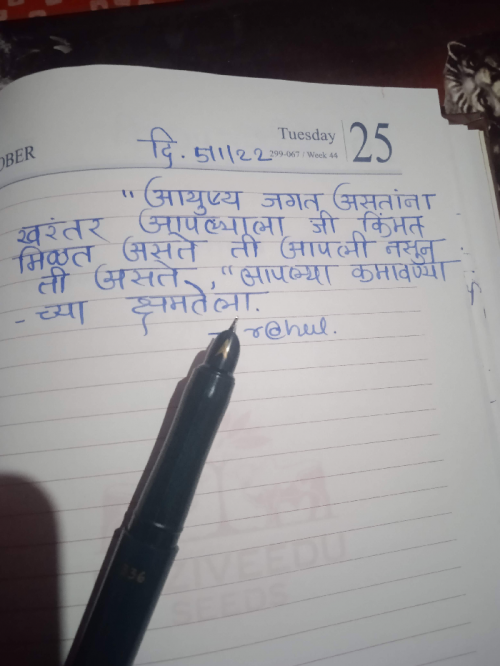 OBER
Tuesday 25
299-067 / Week 44
दि. 5/1/22
" आयुष्य जगत असतांना
खरंतर आपल्याला जी किंमत
मिळत असते ती आपली नसून
ती असते ," आपल्या कमावण्या
- च्या क्षमतेला.
- r@hul.
ZIVEEDU
SEEDS
136